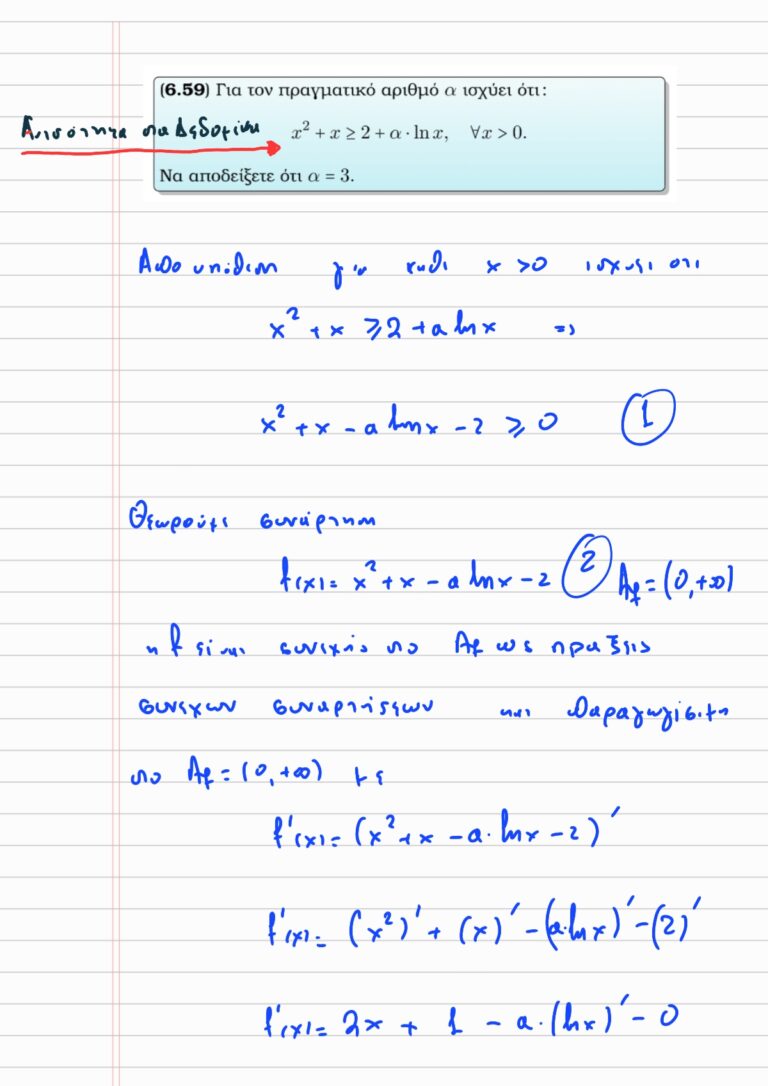 (6.59) Για τον πραγματικό αριθμό α ισχύει ότι:
Ανισότητα στα Δεδομένα
x² + x ≥ 2 + α · ln x, ∀x > 0.
Να αποδείξετε ότι α = 3.
Από υπόθεση για κάθε x > 0 ισχύει οτι
x² + x ≥ 2 + a ln x =>
x² + x - a ln x - 2 ≥ 0 (1)
Θεωρούμε συνάρτηση
f(x) = x² + x - a ln x - 2 (2) Af = (0, +∞)
η f είναι συνεχής στο Af ως πράξεις
συνεχων συναρτήσεων και παραγωγίσιμη
στο Af = (0, +∞) με
f'(x) = (x² + x - a · ln x - 2)'
f'(x) = (x²)' + (x)' - (a · ln x)' - (2)'
f'(x) = 2x + 1 - a · (ln x)' - 0